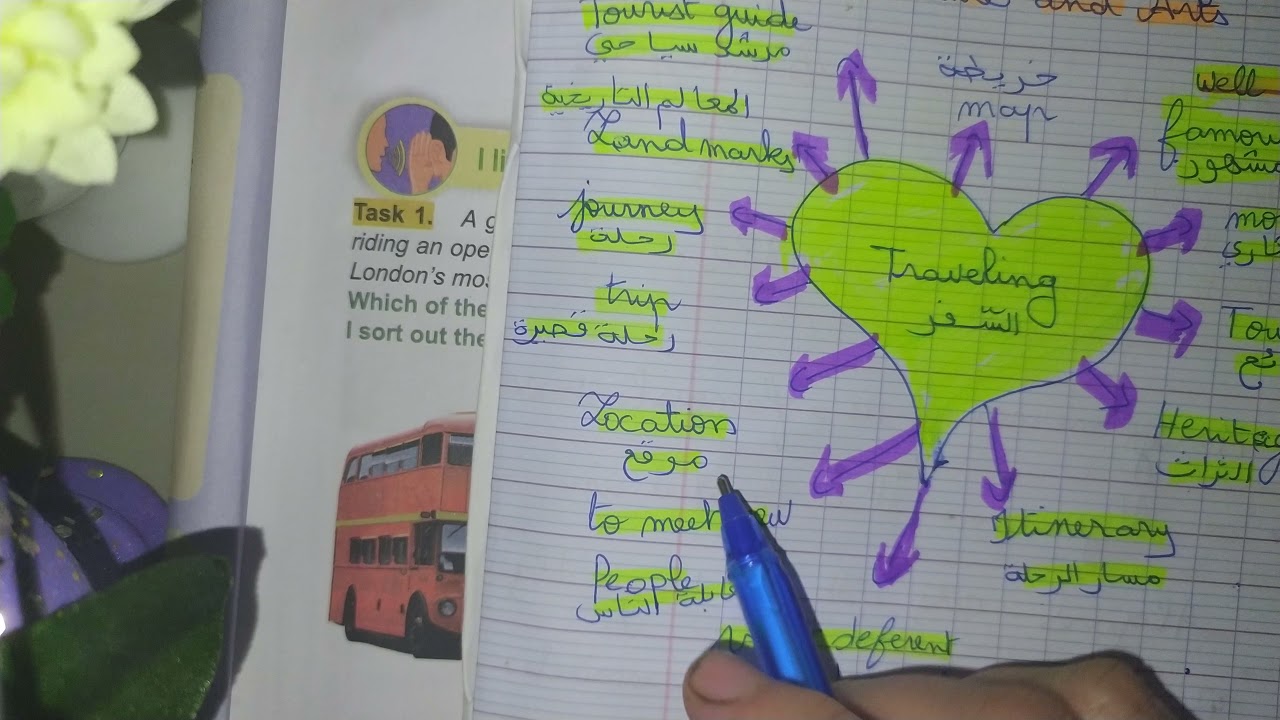 I li
Task 1. A g
riding an ope
London's mo
Which of the
I sort out the
and Arts
Tourist guide
مرشد سياحي
المعالم التاريخية
Landmarks
journey
رحلة
trip
رحلة قصيرة
Location
موقع
to meet
People
الناس
deferent
خريطة
map
Traveling
السّفر
Well
famou
مشهور
mo
Tou
Heritag
التراث
Itinerary
مسار الرحلة